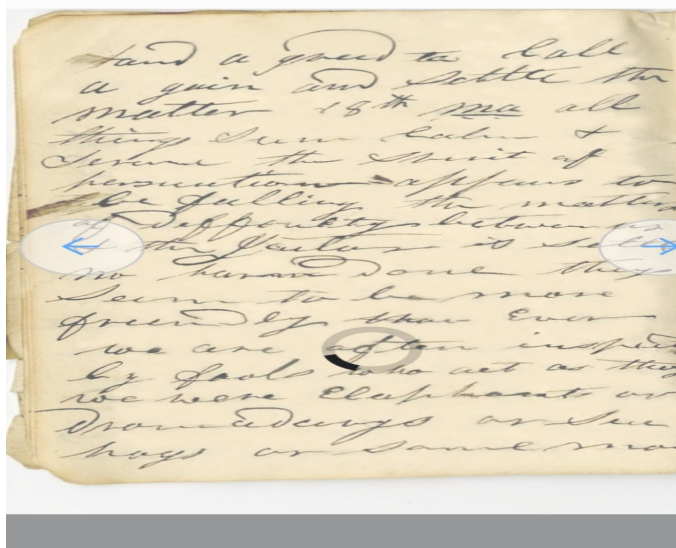 and a greed to call
a gain and settle the
matter 18th ma all
things seem calm &
serene the spirit of
persecution appears to
be falling the matter
of between us
& the Jaulor is
no harm done they
seem to be more
freendly than ever
we are often
by fools who act as tho
we were Elaphants or
dromadarys or sea
hogs or some